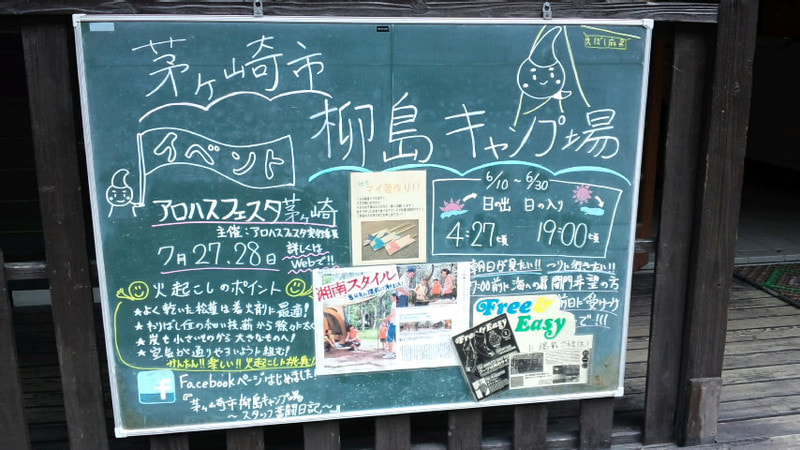 茅ヶ崎市
柳島キャンプ場
えぼし麻呂
イベント
アロハスフェスタ茅ヶ崎
主催：アロハスフェスタ実行委員
7月27.28日
詳しくは
Webで!!
マイ箸作り!!
6/10 〜 6/30
日の出 日の入り
4:27頃 19:00頃
火起こしのポイント
★よく乾いた松葉は着火剤に最適!
★わりばし位の細い枝薪から徐々に太く
★炭も小さいものから大きなものへ!
★空気が通りやすいよう組む!
かんたん!! 楽しい!! 火起こしに挑戦
Facebookページはじめました!
『茅ヶ崎市柳島キャンプ場
〜スタッフ奮闘日記〜』
湘南スタイル
朝日が見たい!! つりに行きたい!!
7:00前に海への扉 開門希望の方
前日に受付
で!!!
Free&
Easy
Free&Easy
に掲載